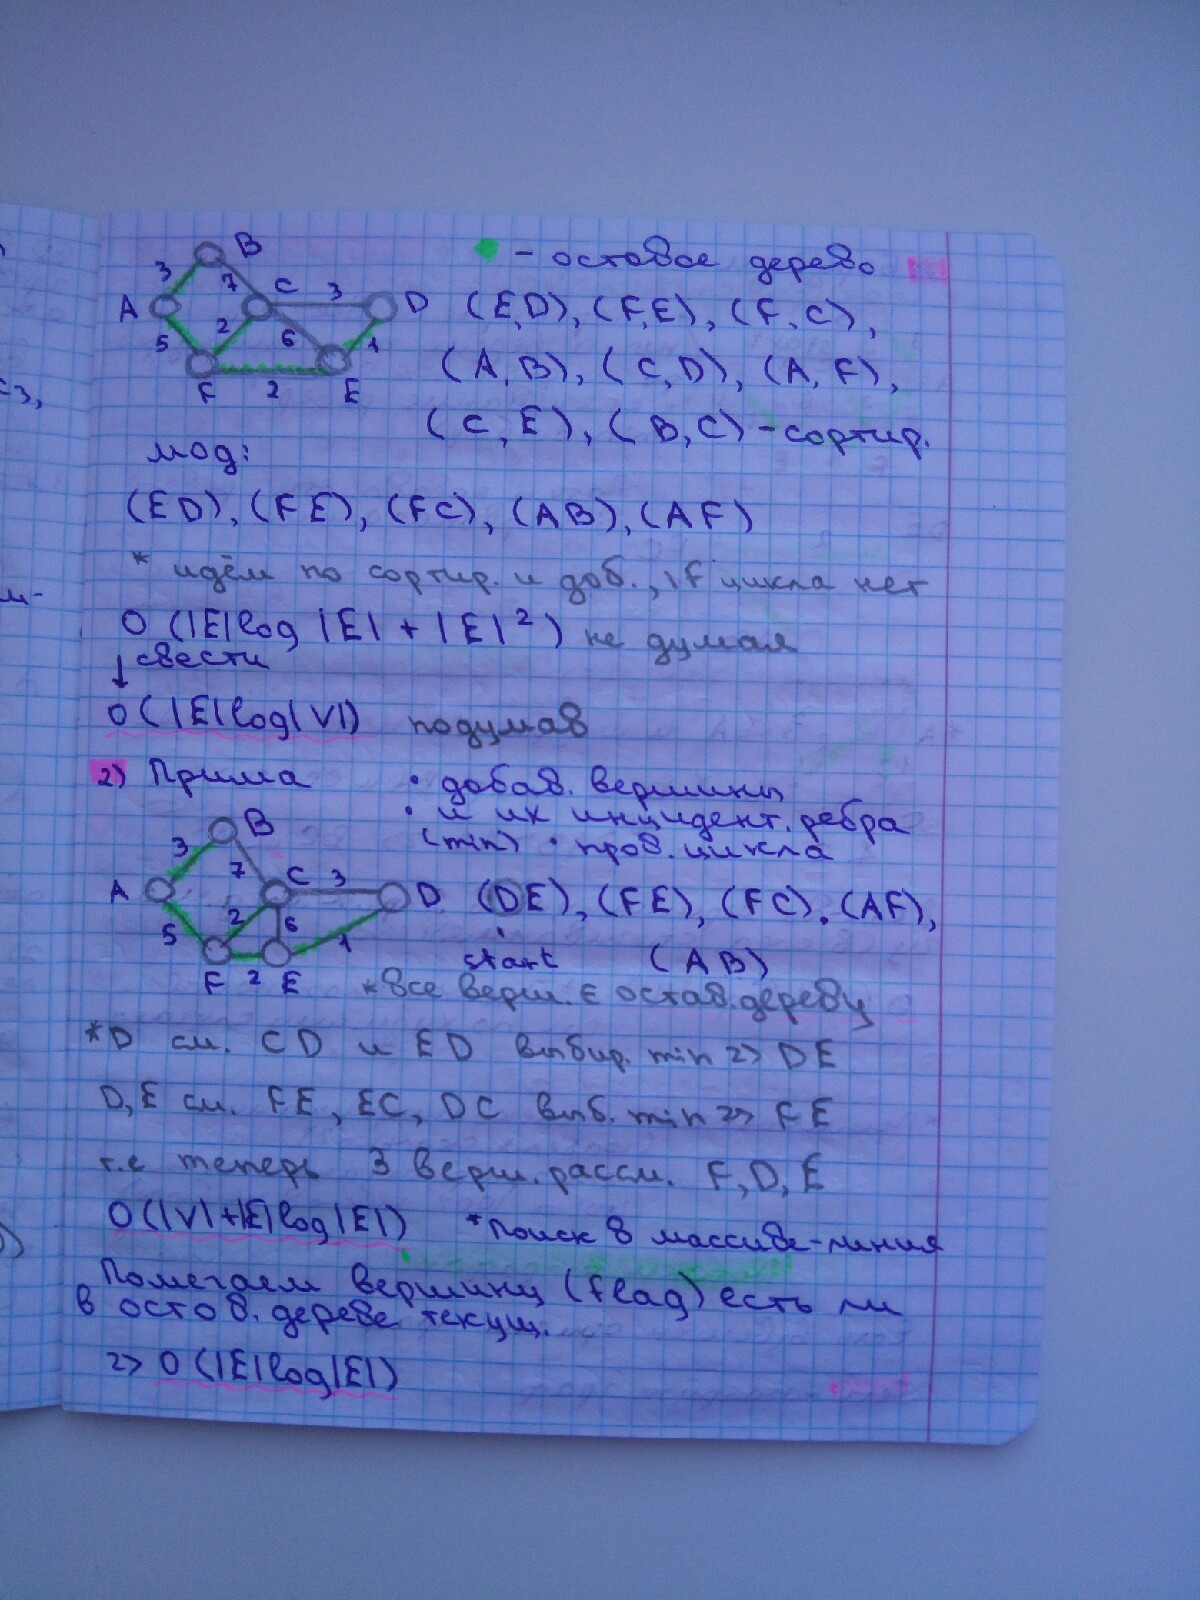 B
3
7
C
3
A
D
5
2
6
1
F
2
E
- остовое дерево
(E,D), (F,E), (F,C),
(A,B), (C,D), (A,F),
(C,E), (B,C) - сортир.
мод:
(ED), (FE), (FC), (AB), (AF)
* идём по сортир. и доб., if цикла нет
O (|E|log |E| + |E|²) не думая
↓ свести
O(|E|log|V|) подумав
2) Прима
• добав. вершины
• и их инцидент. ребра
(min) • пров. цикла
B
3
7
C
3
A
D
5
2
6
1
F
2
E
(DE), (FE), (FC), (AF),
start (AB)
*все верш. ∈ остов. дереву
*D см. CD и ED выбир. min => DE
D,E см. FE, EC, DC выб. min => FE
т.е теперь 3 верш. рассм. F, D, E
O(|V|+|E|log|E|) *поиск в массиве-линия
Помечаем вершину (flag) есть ли
в остов. дереве текущ.
=> O(|E|log|E|)